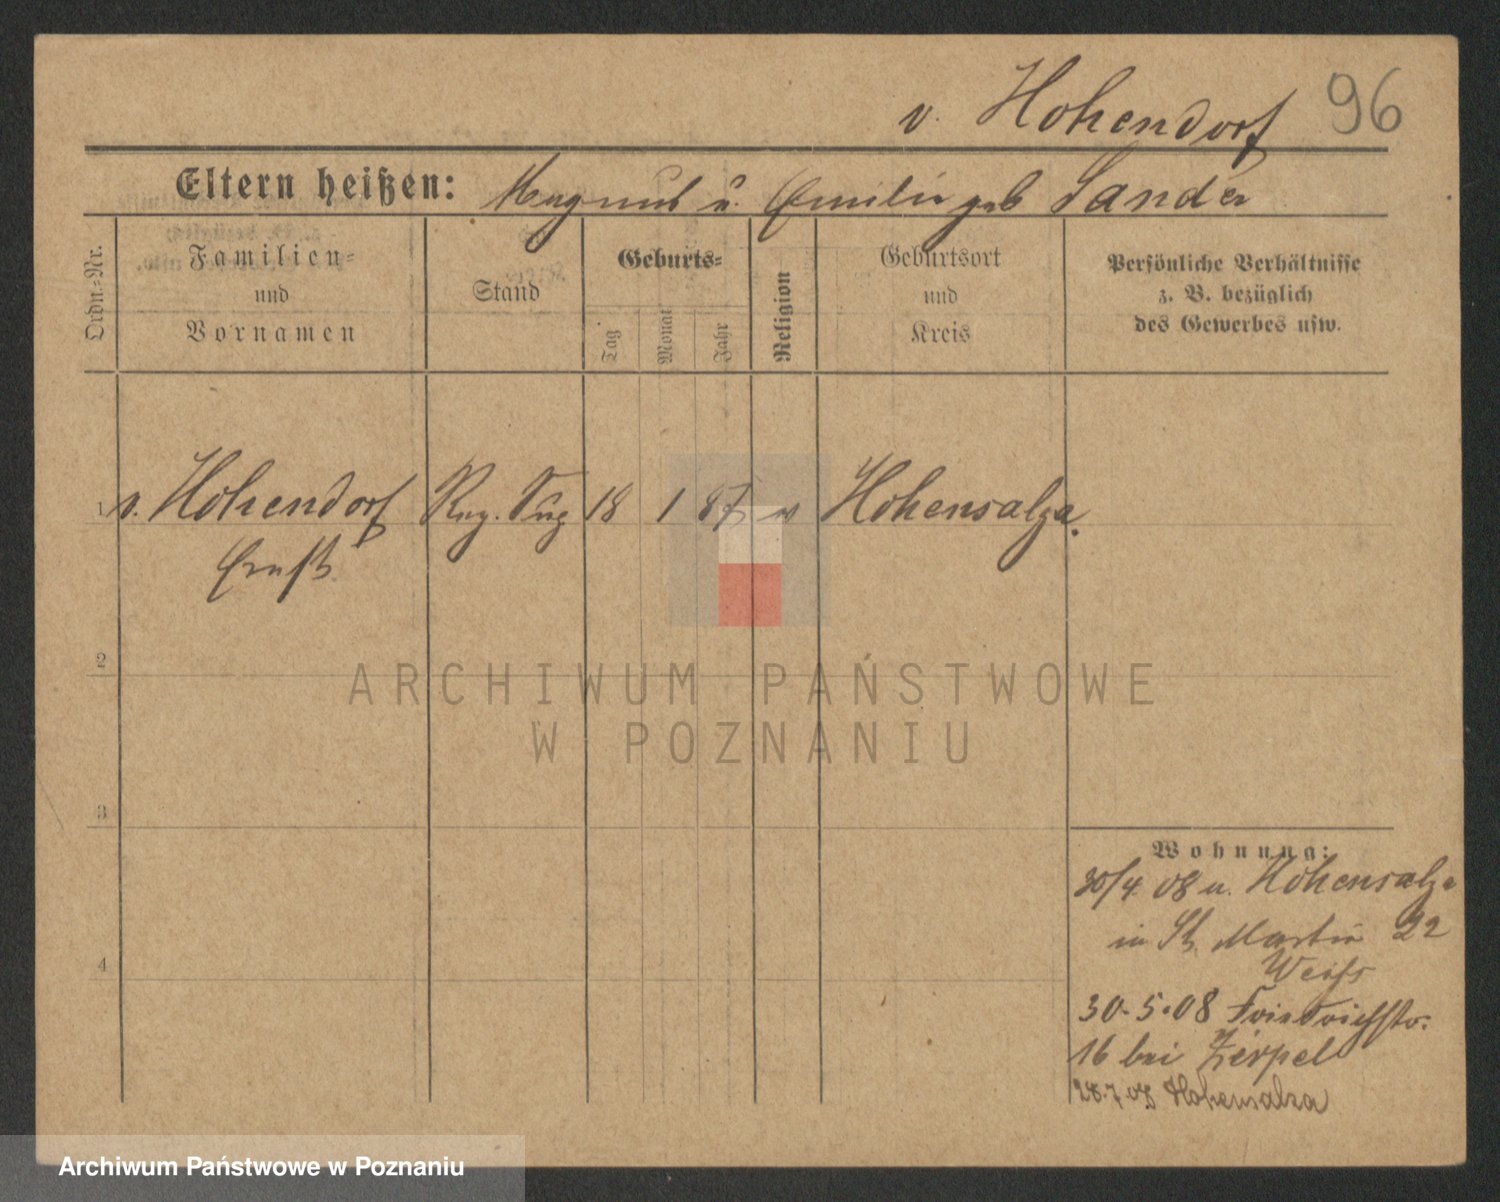 v. Hohendorf 96
Eltern heißen: Magnus u. Emilie geb Sander
Ordn.-Nr.
Familien-
und
Vornamen
Stand
Geburts-
Tag
Monat
Jahr
Religion
Geburtsort
und
Kreis
Persönliche Verhältnisse
z. B. bezüglich
des Gewerbes usw.
1 v. Hohendorf Reg. 18 1 87 Hohensalza.
Ernst
2
ARCHIWUM PAŃSTWOWE
W POZNANIU
3
Wohnung:
30/4. 08 u. Hohensalza
in St. Martin 22
Weiss
4
30.5.08 Friedrichstr.
16 bei Zerpel
28.7.08 Hohensalza
Archiwum Państwowe w Poznaniu